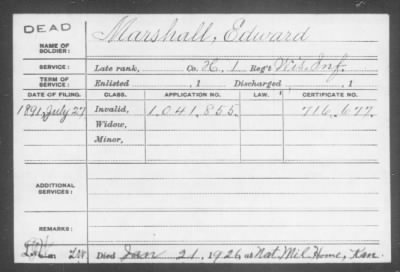 DEAD
NAME OF SOLDIER: Marshall, Edward
SERVICE: Late rank, Co. H, 1 Reg't Wis. Inf.
TERM OF SERVICE: Enlisted , 1 Discharged , 1
DATE OF FILING. CLASS. APPLICATION NO. LAW. CERTIFICATE NO.
1891, July 27 Invalid, 1.041.855. 716.677.
Widow,
Minor,
ADDITIONAL SERVICES:
REMARKS:
Died Jan 21, 1926, at Nat. Mil. Home, Kan.